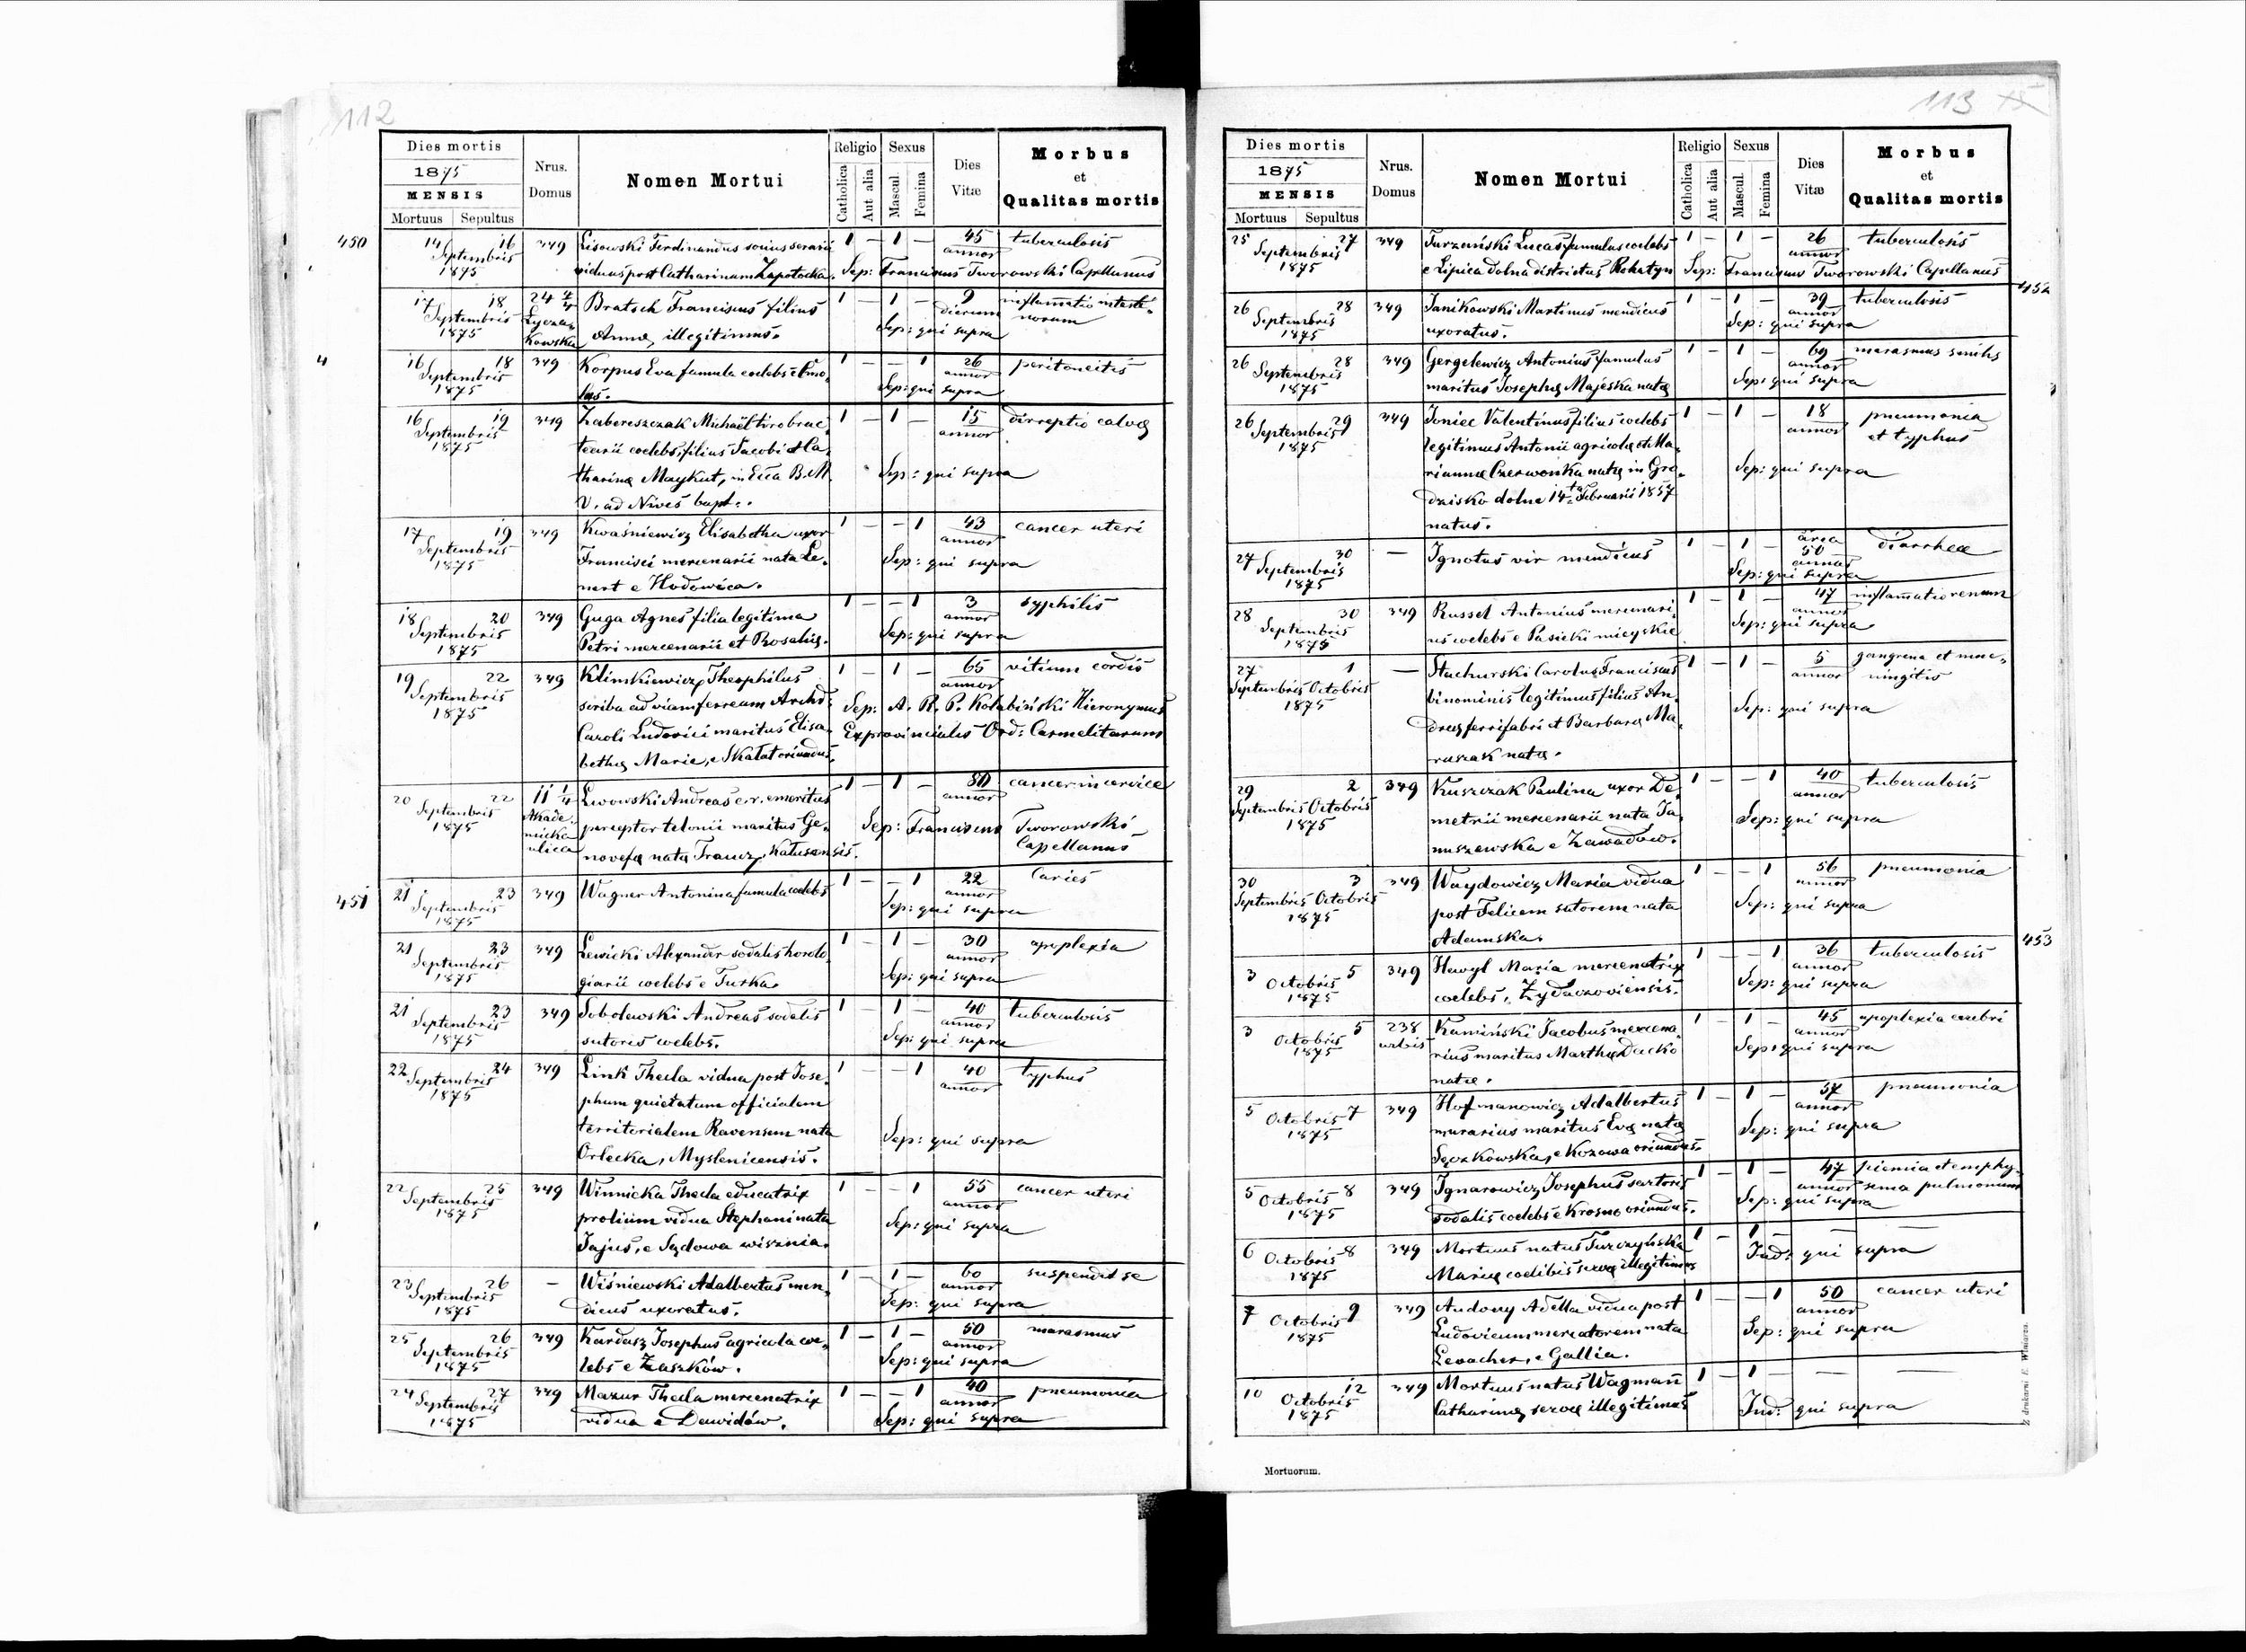 112
Dies mortis
1875
MENSIS
Mortuus Sepultus
Nrus. Domus
Nomen Mortui
Religio
Catholica
Aut alia
Sexus
Mascul.
Femina
Dies Vitæ
Morbus et Qualitas mortis
450
14 16 349 Lisowski Ferdinandus socius serarii 1 — 1 — 45 tuberculosis
Septembris annor
1875 viduus post Catharinam Zapotocka. Sep: Franciscus Tworowski Capellanus
17 18 24 4/4 Bratsch Franciscus filius 1 — 1 — 9 inflamatio intesti-
Septembris Lycza- dierum norum
1875 kowska Annæ, illegitimus. Sep: qui supra
4
16 18 349 Korpus Eva famula coelebs e 1 — — 1 26 peritoneitis
Septembris annor
1875 Sep: qui supra
16 19 349 Zabereszczak Michaël tiro brac- 1 — 1 — 15 dirreptio calvæ
Septembris tearii coelebs, filius Jacobi et Ca- annor
1875 tharinæ Maykut, in Ecca B. M. Sep: qui supra
V. ad Nives bapt.
17 19 349 Kwaśniewicz Elisabetha uxor 1 — — 1 43 cancer uteri
Septembris Francisci mercenarii nata Le- annor
1875 nert e Hodowica. Sep: qui supra
18 20 349 Guga Agnes filia legitima 1 — — 1 3 syphilis
Septembris annor
1875 Petri mercenarii et Rosaliæ. Sep: qui supra
19 22 349 Klimkiewicz Theophilus 1 — 1 — 65 vitium cordis
Septembris scriba ad viam ferream Archd: annor
1875 Caroli Ludovici maritus Elisa- Sep: A. R. P. Kołabiński Hieronymus
bethæ Marie, e Skałat oriundus. Exprovincialis Ord: Carmelitarum
20 22 11 1/4 Lwowski Andreas c.r. emeritus 1 — 1 — 80 cancer in cervice
Septembris Akade- annor
1875 micka perceptor telonii maritus Ge- Sep: Franciscus Tworowski
ulica novefæ natæ Trancz, Kałusensis. Capellanus
451
21 23 349 Wagner Antonina famula coelebs 1 — — 1 22 Caries
Septembris annor
1875 Sep: qui supra
21 23 349 Lewicki Alexander sodalis horolo- 1 — 1 — 30 apoplexia
Septembris annor
1875 giarii coelebs e Turka. Sep: qui supra
21 23 349 Sobolewski Andreas sodalis 1 — 1 — 40 tuberculosis
Septembris annor
1875 sutoris coelebs. Sep: qui supra
22 24 349 Link Thecla vidua post Jose- 1 — — 1 40 typhus
Septembris phum quietatum officialem annor
1875 territorialem Ravensem nata Sep: qui supra
Orlecka, Myslenicensis.
22 25 349 Winnicka Thecla educatrix 1 — — 1 55 cancer uteri
Septembris prolium vidua Stephani nata annor
1875 Jajus, e Sądowa wisznia. Sep: qui supra
23 26 — Wiśniewski Adalbertus men- 1 — 1 — 60 suspendit se
Septembris annor
1875 dicus uxoratus. Sep: qui supra
25 26 349 Kardasz Josephus agricola coe- 1 — 1 — 50 marasmus
Septembris annor
1875 lebs e Zaszków. Sep: qui supra
24 27 349 Mazur Thecla mercenatrix 1 — — 1 40 pneumonia
Septembris annor
1875 vidua e Dawidów. Sep: qui supra
113
Dies mortis
1875
MENSIS
Mortuus Sepultus
Nrus. Domus
Nomen Mortui
Religio
Catholica
Aut alia
Sexus
Mascul.
Femina
Dies Vitæ
Morbus et Qualitas mortis
25 27 349 Turzański Lucas famulus coelebs 1 — 1 — 26 tuberculosis
Septembris annor
1875 e Lipica dolna districtus Rohatyn Sep: Franciscus Tworowski Capellanus
452
26 28 349 Janikowski Martinus mendicus 1 — 1 — 39 tuberculosis
Septembris annor
1875 uxoratus. Sep: qui supra
26 28 349 Gergelewicz Antonius famulus 1 — 1 — 69 marasmus senilis
Septembris annor
1875 maritus Josephæ Majeska natæ Sep: qui supra
26 29 349 Joniec Valentinus filius coelebs 1 — 1 — 18 pneumonia
Septembris legitimus Antonii agricolæ et Ma- annor et typhus
1875 riannæ Czerwonka natæ in Gro- Sep: qui supra
dzisko dolne 14ta Februarii 1857
natus.
27 30 — Ignotus vir mendicus 1 — 1 — circa 50 diarrhea
Septembris annor
1875 Sep: qui supra
28 30 349 Russel Antonius mercenari- 1 — 1 — 47 inflamatio renum
Septembris annor
1875 us coelebs e Pasieki mieyskie Sep: qui supra
27 1 — Stachurski Carolus Franciscus 1 — 1 — 5 gangrena et me-
Septembris Octobris binominis legitimus filius An- annor ningitis
1875 dreæ ferrifabri et Barbaræ Ma- Sep: qui supra
ruszak natæ.
29 2 349 Kuszczak Paulina uxor De- 1 — — 1 40 tuberculosis
Septembris Octobris metrii mercenarii nata Ja- annor
1875 nuszewska e Zawadow. Sep: qui supra
30 3 349 Waydowicz Maria vidua 1 — — 1 56 pneumonia
Septembris Octobris post Felicem sutorem nata annor
1875 Adamska. Sep: qui supra
453
3 5 349 Hawyl Maria mercenatrix 1 — — 1 36 tuberculosis
Octobris annor
1875 coelebs, Zydaczoviensis. Sep: qui supra
3 5 238 Kamiński Jacobus mercena- 1 — 1 — 45 apoplexia cerebri
Octobris urbis rius maritus Marthæ Dacko annor
1875 natæ. Sep: qui supra
5 7 349 Hofmanowicz Adalbertus 1 — 1 — 57 pneumonia
Octobris murarius maritus Evæ natæ annor
1875 Sączkowska, e Kozowa oriundus. Sep: qui supra
5 8 349 Ignarowicz Josephus sartoris 1 — 1 — 47 piemia et emphy-
Octobris annor sema pulmonum
1875 sodalis coelebs e Krosno oriundus. Sep: qui supra
6 8 349 Mortuus natus Turczyńska 1 — 1 — — —
Octobris
1875 Mariæ coelibis servæ illegitimus Ind: qui supra
7 9 349 Audony Adella vidua post 1 — — 1 50 cancer uteri
Octobris Ludovicum mercatorem nata annor
1875 Levacher, e Gallia. Sep: qui supra
10 12 349 Mortuus natus Wagman 1 — 1 — — —
Octobris
1875 Catharinæ servæ illegitimus Ind: qui supra
Mortuorum.
Z drukarni E. Winiarza.